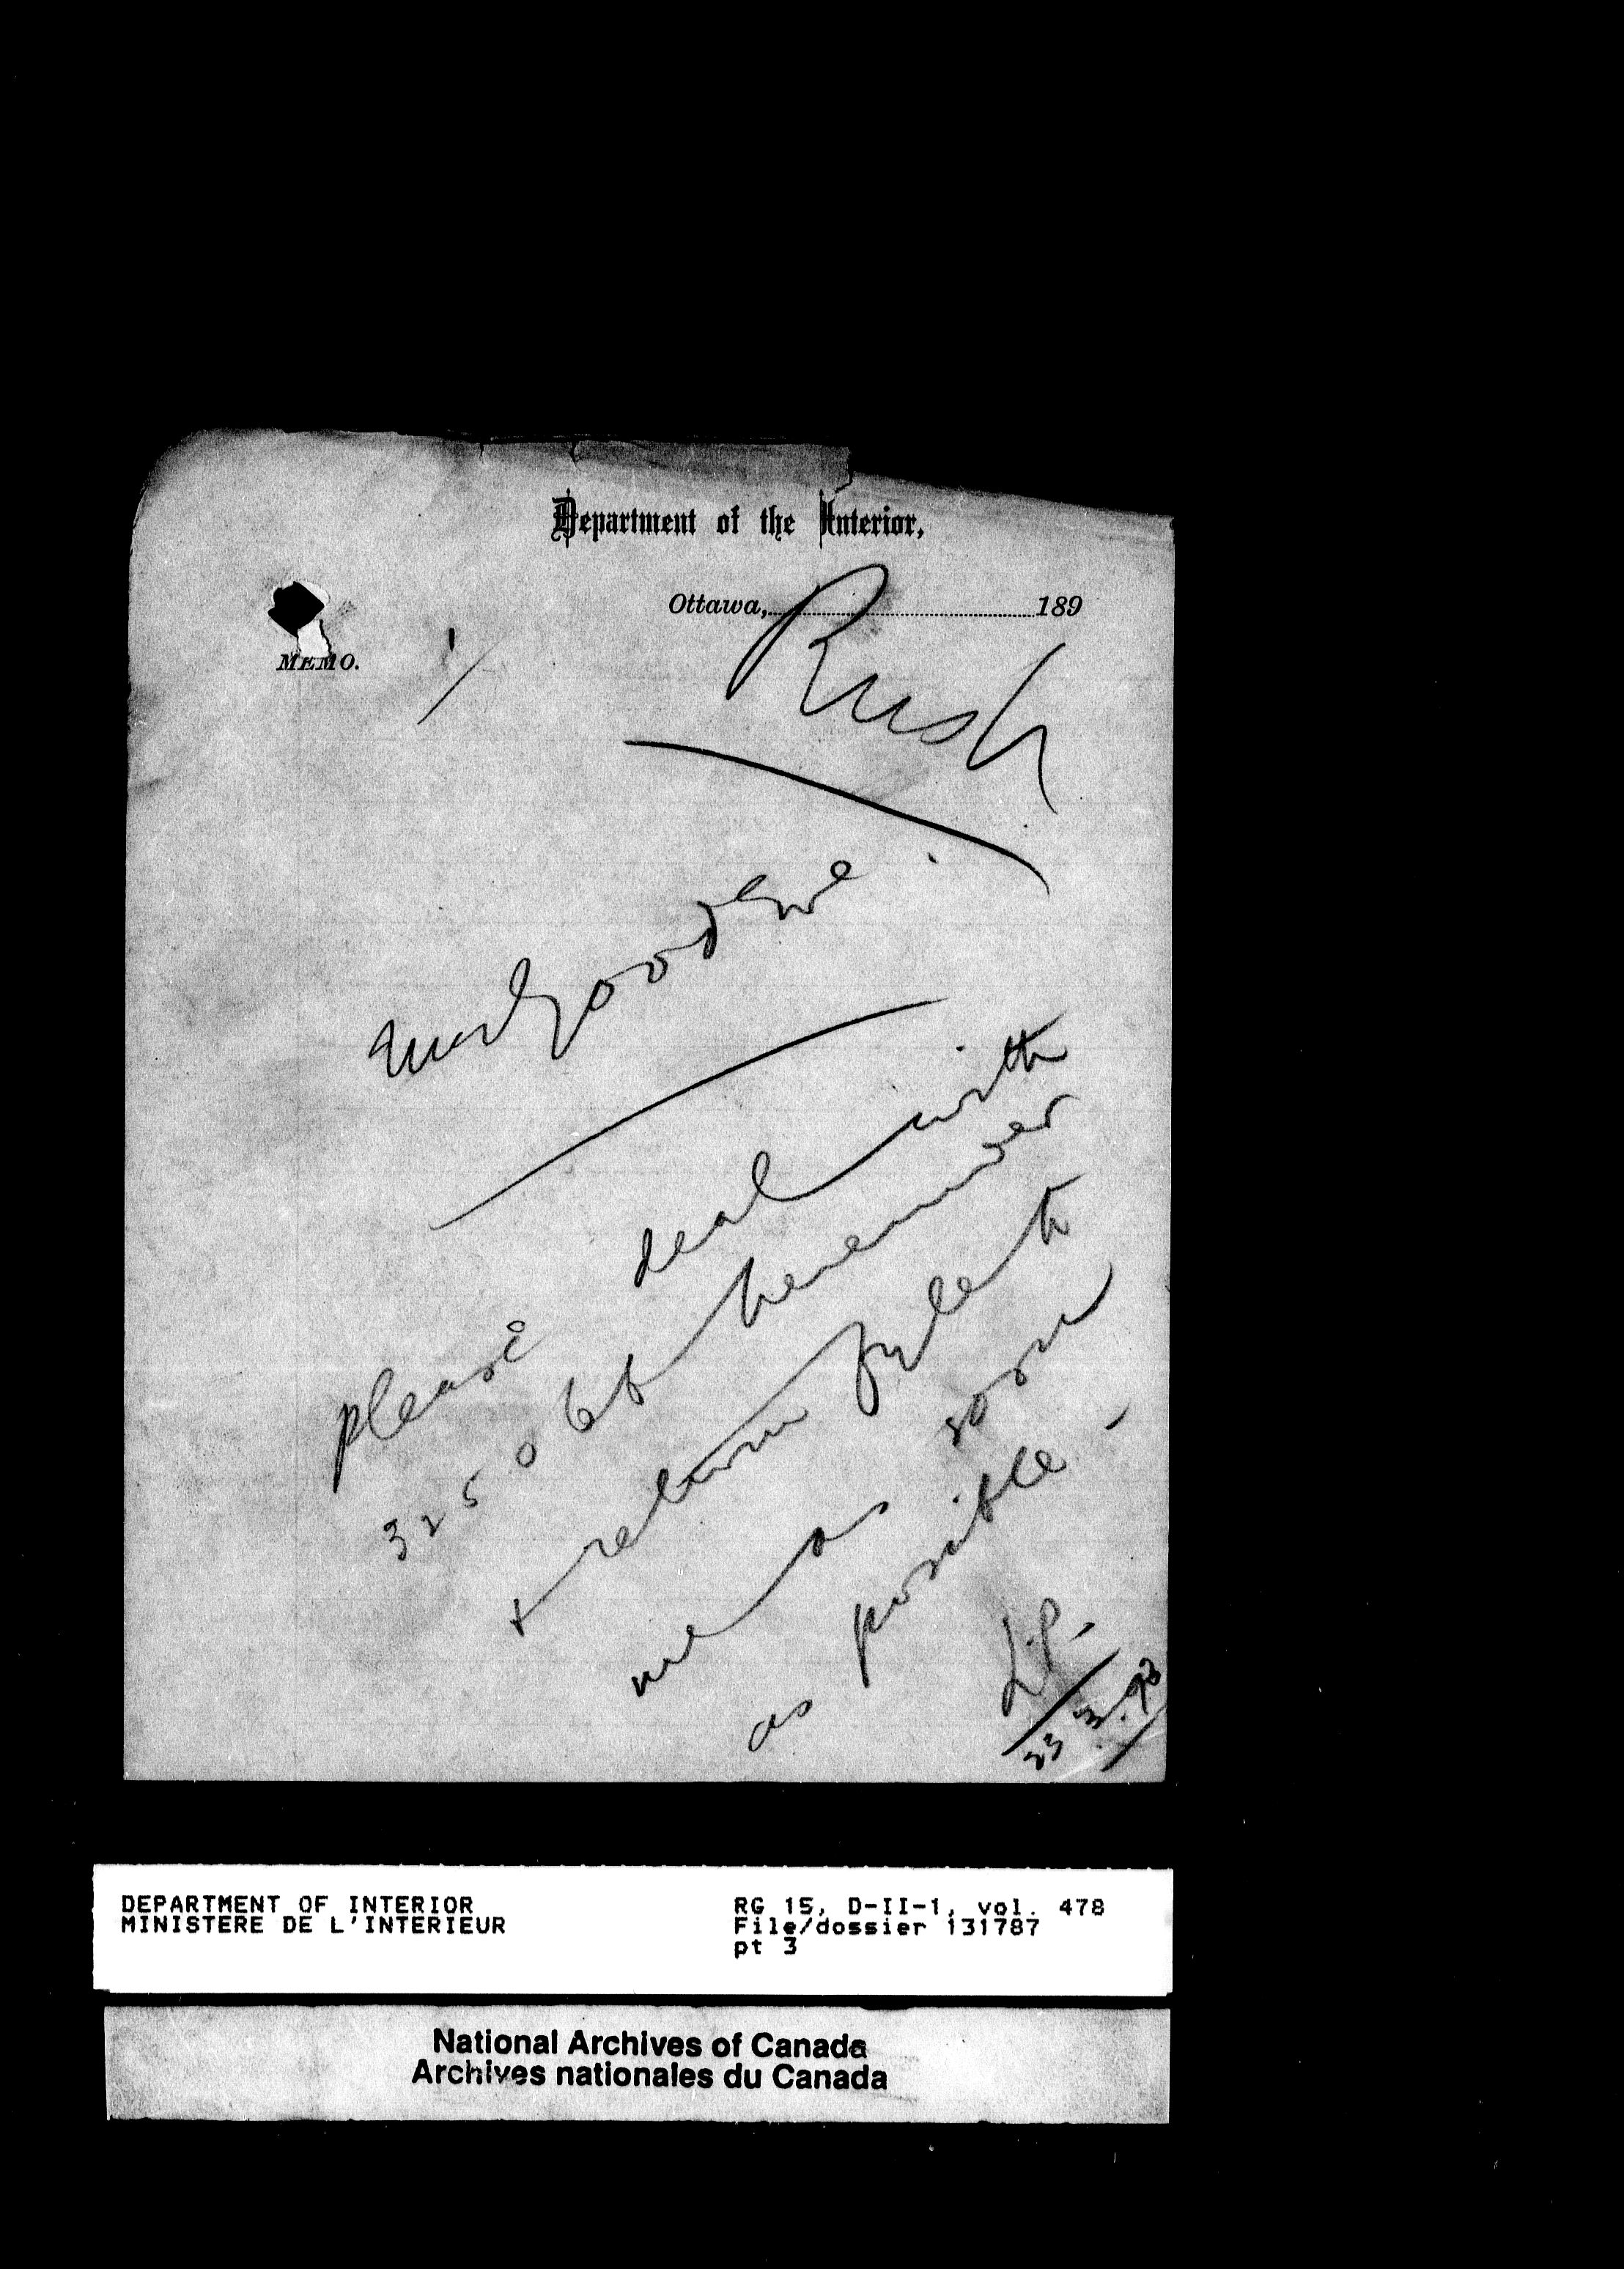 Department of the Interior,
Ottawa, 189
MEMO.
Rush
Mr Goodeve
please deal with
325066 hereunder
& return file to
me as soon
as possible -
L.P.
23.3.93
DEPARTMENT OF INTERIOR
MINISTERE DE L'INTERIEUR
RG 15, D-II-1, vol. 478
File/dossier 131787
pt 3
National Archives of Canada
Archives nationales du Canada